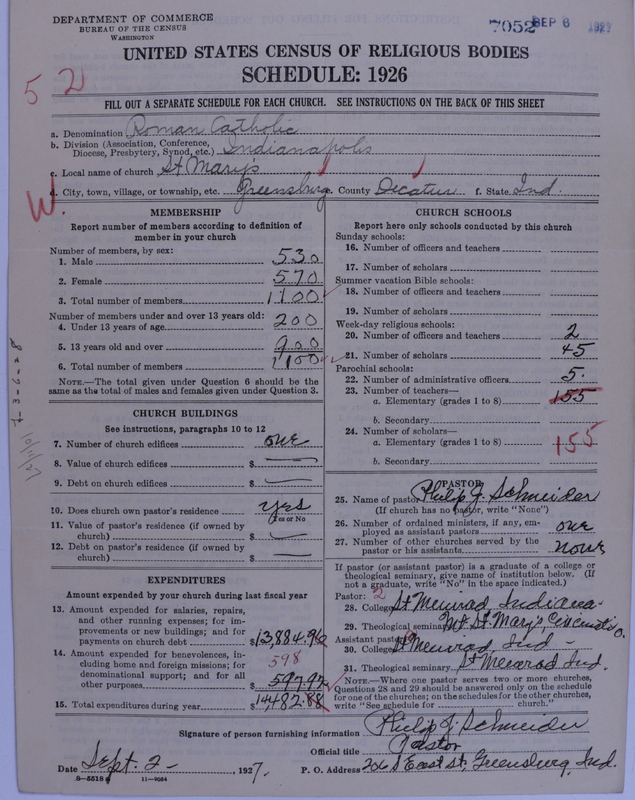 DEPARTMENT OF COMMERCE
BUREAU OF THE CENSUS
WASHINGTON
7052 SEP 6 1927
UNITED STATES CENSUS OF RELIGIOUS BODIES
SCHEDULE: 1926
52
FILL OUT A SEPARATE SCHEDULE FOR EACH CHURCH. SEE INSTRUCTIONS ON THE BACK OF THIS SHEET
a. Denomination Roman Catholic
b. Division (Association, Conference, Diocese, Presbytery, Synod, etc.) Indianapolis
c. Local name of church St Mary's
d. City, town, village, or township, etc. Greensburg e. County Decatur f. State Ind.
W.
MEMBERSHIP
Report number of members according to definition of member in your church
Number of members, by sex:
1. Male 530
2. Female 570
3. Total number of members 1100
Number of members under and over 13 years old:
4. Under 13 years of age 200
5. 13 years old and over 900
6. Total number of members 1100
NOTE.—The total given under Question 6 should be same as the total of males and females given under Question 3.
CHURCH BUILDINGS
See instructions, paragraphs 10 to 12
7. Number of church edifices one
8. Value of church edifices $ —
9. Debt on church edifices $ —
10. Does church own pastor's residence yes
Yes or No
11. Value of pastor's residence (if owned by church) $ —
12. Debt on pastor's residence (if owned by church) $ —
EXPENDITURES
Amount expended by your church during last fiscal year
13. Amount expended for salaries, repairs, and other running expenses; for improvements or new buildings; and for payments on church debt $13,884.96
14. Amount expended for benevolences, including home and foreign missions; for denominational support; and for all other purposes $597.92
598
15. Total expenditures during year $14482.88
CHURCH SCHOOLS
Report here only schools conducted by this church
Sunday schools:
16. Number of officers and teachers
17. Number of scholars
Summer vacation Bible schools:
18. Number of officers and teachers
19. Number of scholars
Week-day religious schools:
20. Number of officers and teachers 2
21. Number of scholars 45
Parochial schools:
22. Number of administrative officers 5.
23. Number of teachers—
a. Elementary (grades 1 to 8) 155
b. Secondary
24. Number of scholars—
a. Elementary (grades 1 to 8) 155
b. Secondary
PASTOR
25. Name of pastor Philip J. Schneider
(If church has no pastor, write "None")
26. Number of ordained ministers, if any, employed as assistant pastors one
27. Number of other churches served by the pastor or his assistants none
If pastor (or assistant pastor) is a graduate of a college or theological seminary, give name of institution below. (If not a graduate, write "No" in the space indicated.)
Pastor: 2
28. College St Meinrad, Indiana-
29. Theological seminary Mt. St. Mary's, Cincinnati O.
Assistant pastor:
30. College St Meinrad, Ind -
31. Theological seminary St Meinrad Ind.
NOTE.—Where one pastor serves two or more churches, Questions 28 and 29 should be answered only on the schedule for one of the churches; on the schedules for the other churches, write "See schedule for church."
Signature of person furnishing information Philip J. Schneider
Official title Pastor
Date Sept. 2 - , 1927. P. O. Address 206 S East st, Greensburg, Ind.
8—5518 11—9064